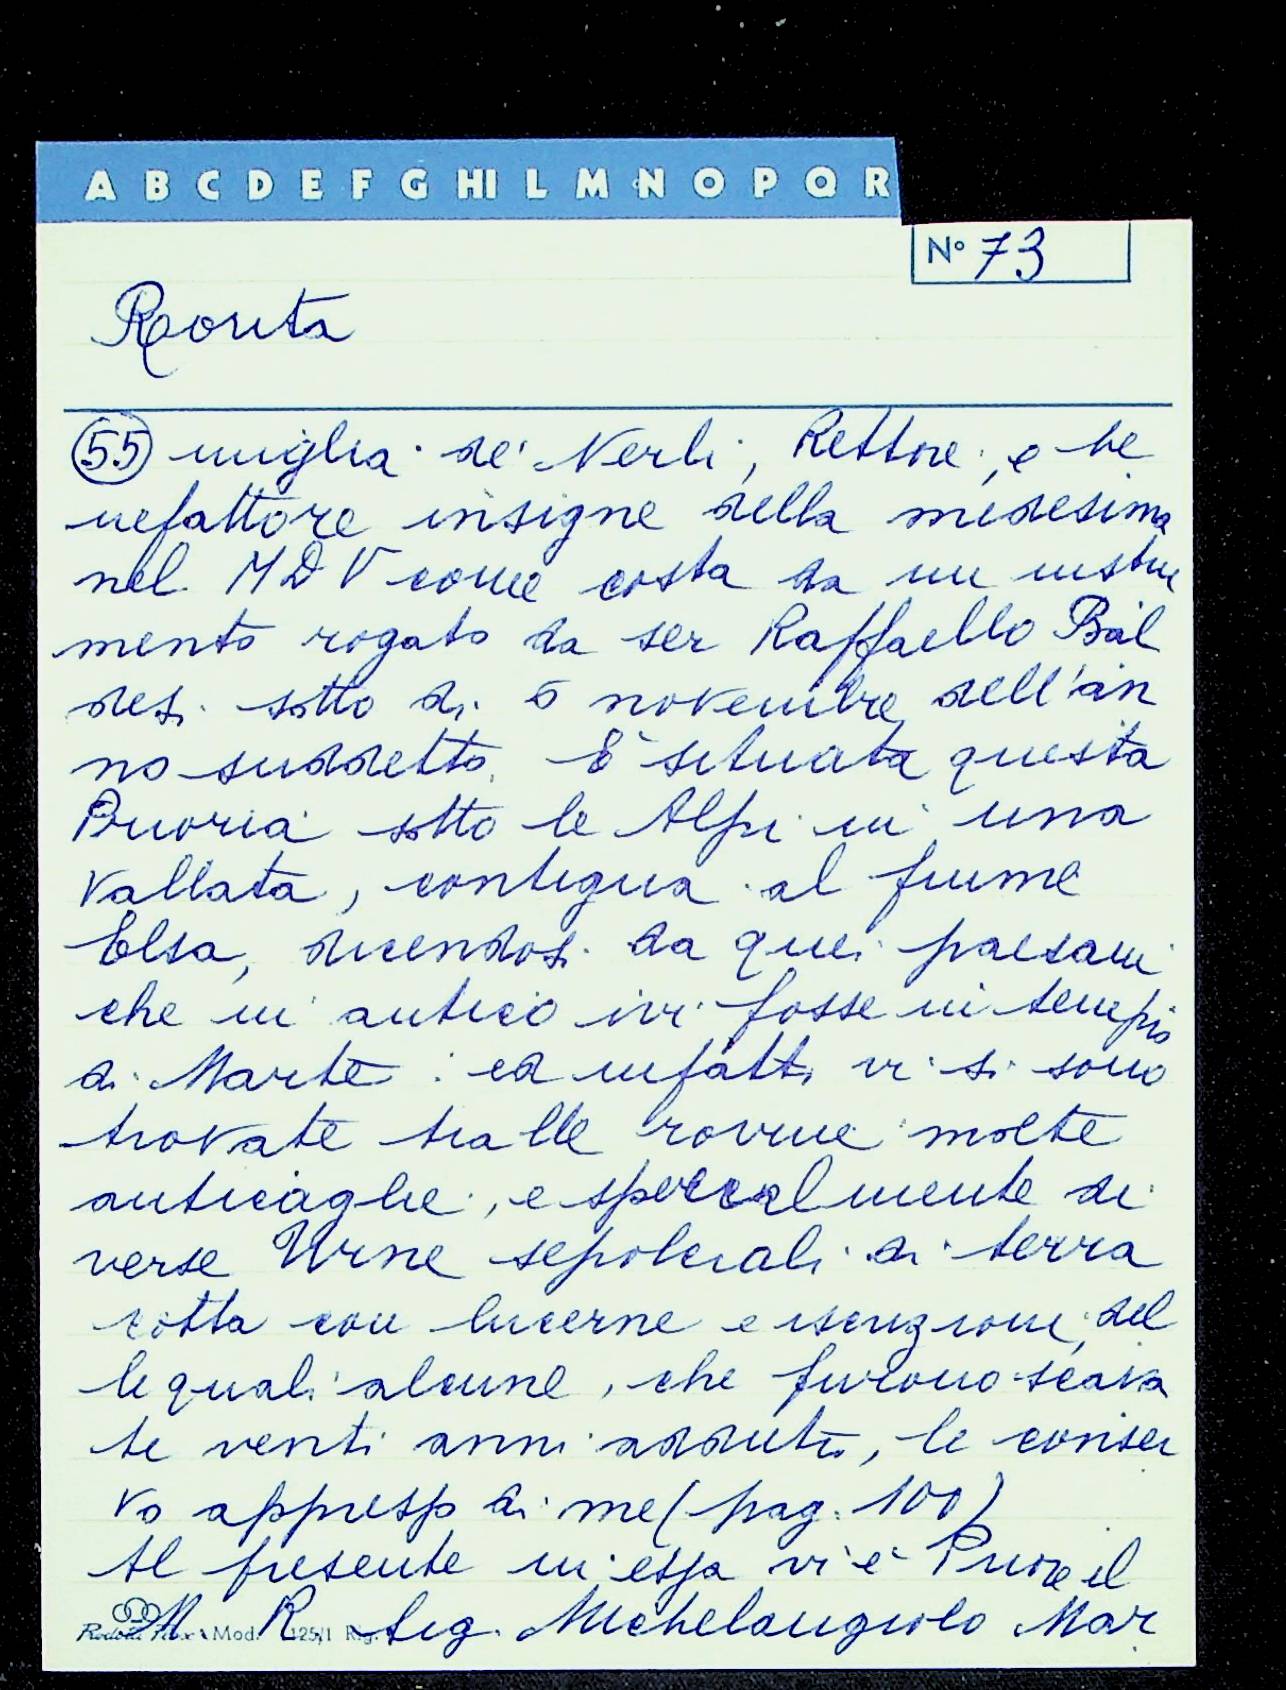 A B C D E F G HI L M N O P Q R
N° 73
Rorita
55 miglia de' Nerli, Rettore, e be
nefattore insigne della medesima
nel MDV come costa da un instru
mento rogato da ser Raffaello Bal
desi sotto di 5 novembre dell'an
no suddetto. È situata questa
Prioria sotto le Alpi in una
vallata, contigua al fiume
Elsa, dicendosi da quei paesani
che in antico ivi fosse in tempio
di Marte: ed infatti vi si sono
trovate tralle rovine molte
anticaglie, e specialmente di
verse Urne sepolcrali di terra
cotta con lucerne e iscrizioni, del
le quali alcune, che furono scava
te venti anni addietro, le conser
vo appresso di me (pag. 100)
Al presente in essa vi è Priore il
M. R. Sig. Michelangiolo Mar
Mod. 125/1 Rig.